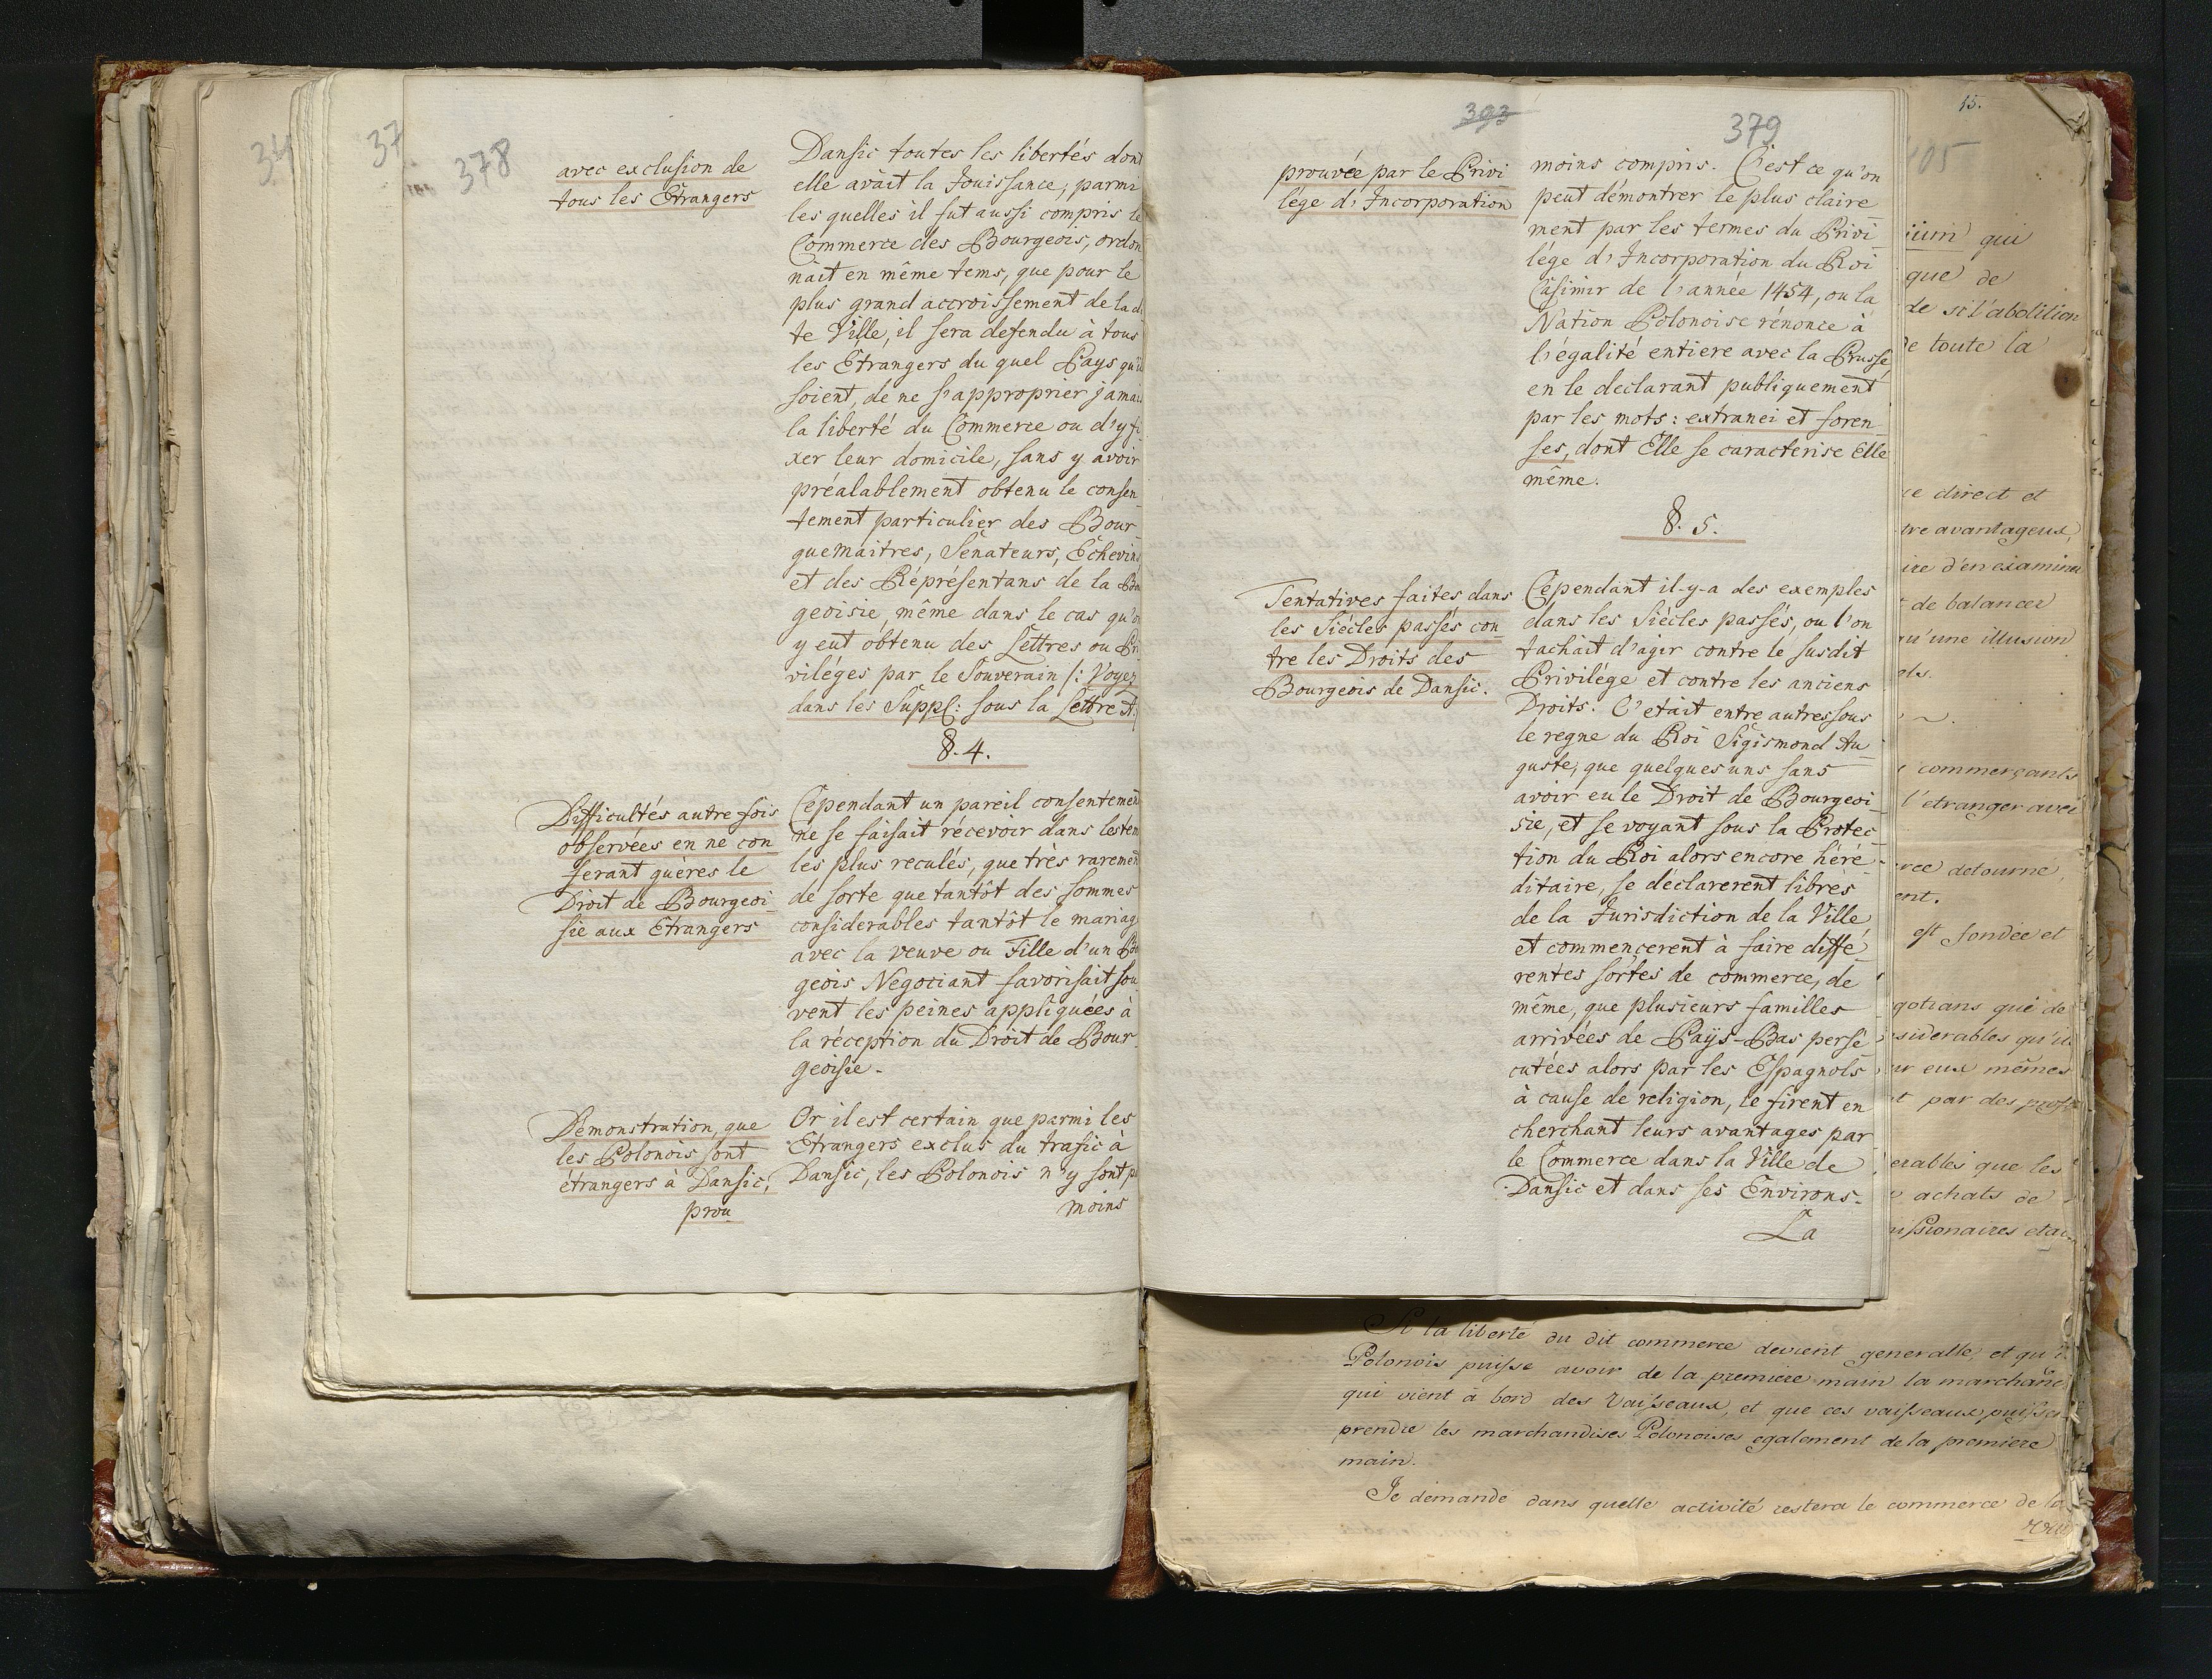 378
avec exclusion de
tous les Etrangers
Dansic toutes les libertés dont
elle avait la Jouissance; parmi
les quelles il fut aussi compris le
Commerce des Bourgeois, ordon
nait en même tems, que pour le
plus grand accroissement de la di
te Ville, il sera defendu à tous
les Etrangers du quel Pays qu'il
soient, de ne s'approprier jamais
la liberté du Commerce ou d'y fi
xer leur domicile, sans y avoir
préalablement obtenu le consen
tement particulier des Bour
guemaitres, Sénateurs, Echevins
et des Réprésentans de la Bo
geoisie, même dans le cas qu'on
y eut obtenu des Lettres ou Pri
viléges par le Souverain /: Voyez
dans les Suppl: sous la Lettre A.
§. 4.
Difficultés autre fois
observées en ne con
ferant guères le
Droit de Bourgeoi
sie aux Etrangers
Cépendant un pareil consentement
ne se faisait récevoir dans les tem
les plus reculés, que très rarement
de sorte que tantôt des sommes
considerables tantôt le mariag
avec la veuve ou Fille d'un Bo
geois Negociant favorisait sou
vent les peines appliquées à
la réception du Droit de Bour
geoisie.
Démonstration, que
les Polonois sont
étrangers à Dansic,
prou
Or il est certain que parmi les
Etrangers exclus du trafic à
Dansic, les Polonois n'y sont p
moins
393
379
prouvée par le Privi
lége d'Incorporation
moins compris. C'est ce qu'on
peut démontrer le plus claire
ment par les termes du Privi
lége d'Incorporation du Roi
Casimir de l'année 1454, ou la
Nation Polonoise rénonce à
l'égalité entiere avec la Prusse,
en le declarant publiquement
par les mots: extranei et foren
ses, dont Elle se caracterise Elle
même.
§. 5.
Tentatives faites dans
les Siécles passés con
tre les Droits des
Bourgeois de Dansic.
Cépendant il-y-a des exemples
dans les Siécles passés, ou l'on
tachait d'agir contre le susdit
Privilége et contre les anciens
Droits. C'etait entre autres sous
le regne du Roi Sigismond Au
guste, que quelques uns sans
avoir eu le Droit de Bourgeoi
sie, et se voyant sous la Protec
tion du Roi alors encore héré
ditaire, se déclarerent libres
de la Jurisdiction de la Ville
et commencerent à faire diffé
rentes sortes de commerce, de
même, que plusieurs familles
arrivées de Païs-Bas persé
cutées alors par les Espagnols
à cause de religion, le firent en
cherchant leurs avantages par
le Commerce dans la Ville de
Dansic et dans ses Environs.
La
15.
405
qui
que de
de si l'abolition
de toute la
ce direct et
tre avantageux,
ire d'en examiner
de balancer
qu'une illusion
commerçants
l'etranger avec
detourné,
ent.
est fondée et
gotians que de
siderables qu'ils
ur eux mêmes
t par des profi
erables que les
achats de
issionaires etai
Si la liberté du dit commerce devient generalle, et qu'il
Polonois puisse avoir de la premiere main la marchand
qui vient à bord des Vaisseaux, et que ces vaisseaux puisse
prendre les marchandises Polonoises egalement de la premiere
main.
Je demande dans quelle activité restera le commerce de la